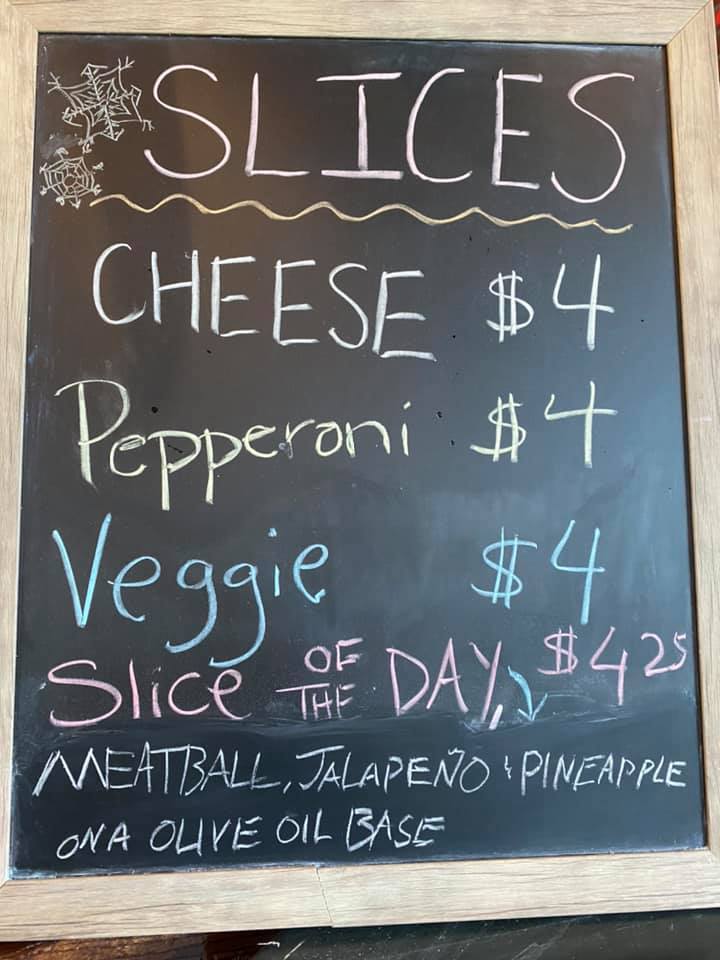 SLICES
CHEESE $4
Pepperoni $4
Veggie $4
Slice OF THE DAY, $4 25
MEATBALL, JALAPEÑO & PINEAPPLE
ON A OLIVE OIL BASE